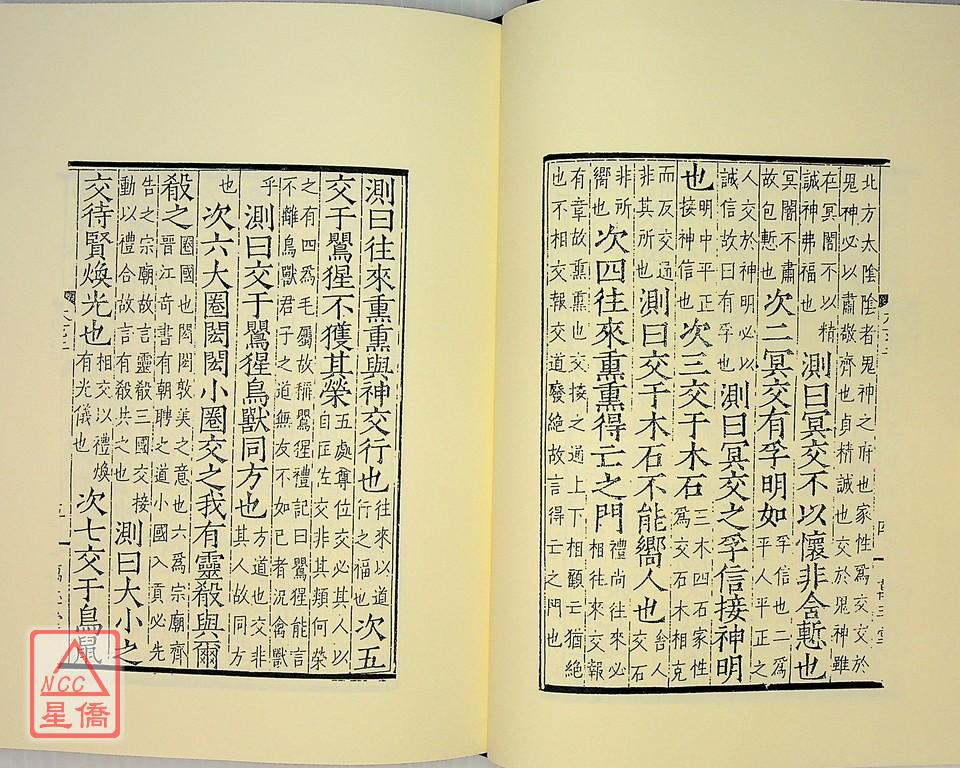 北方太陰陰者鬼神之府也家性為交交於
鬼神必以肅敬齊也貞精誠也交於鬼神雖
在冥闇不以精
誠神弗福也
測曰冥交不以懷非含慙也
冥闇不肅
故包慙也
次二冥交有孚明如
孚信也二為
平人平正之
人交於神明必以
誠信故曰有孚也
測曰冥交之孚信接神明
也
明中平正
接神信也
次三交于木石
三木四石家性
為交石木相克
而反交通
非其所也
測曰交于木石不能嚮人也
舍人
交石
非所
嚮也
次四往來熏熏得亡之門
禮尚往來必
相往來交報
有章故熏熏也交接之道上下相顧云猶絕
也不相交報交道廢絕故言得亡之門也
測曰往來熏熏與神交行也
往來以道
行之福也
次五
交于鸎猩不獲其榮
五處尊位交必其人以
自匡佐交非其類何榮
之有四為毛屬故稱鸎猩禮記曰鸎猩能言
不離鳥獸君子之道無友不如已者況禽獸
乎
測曰交于鸎猩鳥獸同方也
方道也交非
其人故同方
也
次六大圈閎閎小圈交之我有靈殽與爾
殽之
圈國也閎閎敦美之意也六為宗廟齊
晉江奇書有朝聘之道小國入貢必先
告之宗廟故言靈殽三國交接
動以禮合故言有殽共之也
測曰大小之
交待賢煥光也
相交以禮煥
有光儀也
次七交于鳥鼠
NCC
星僑